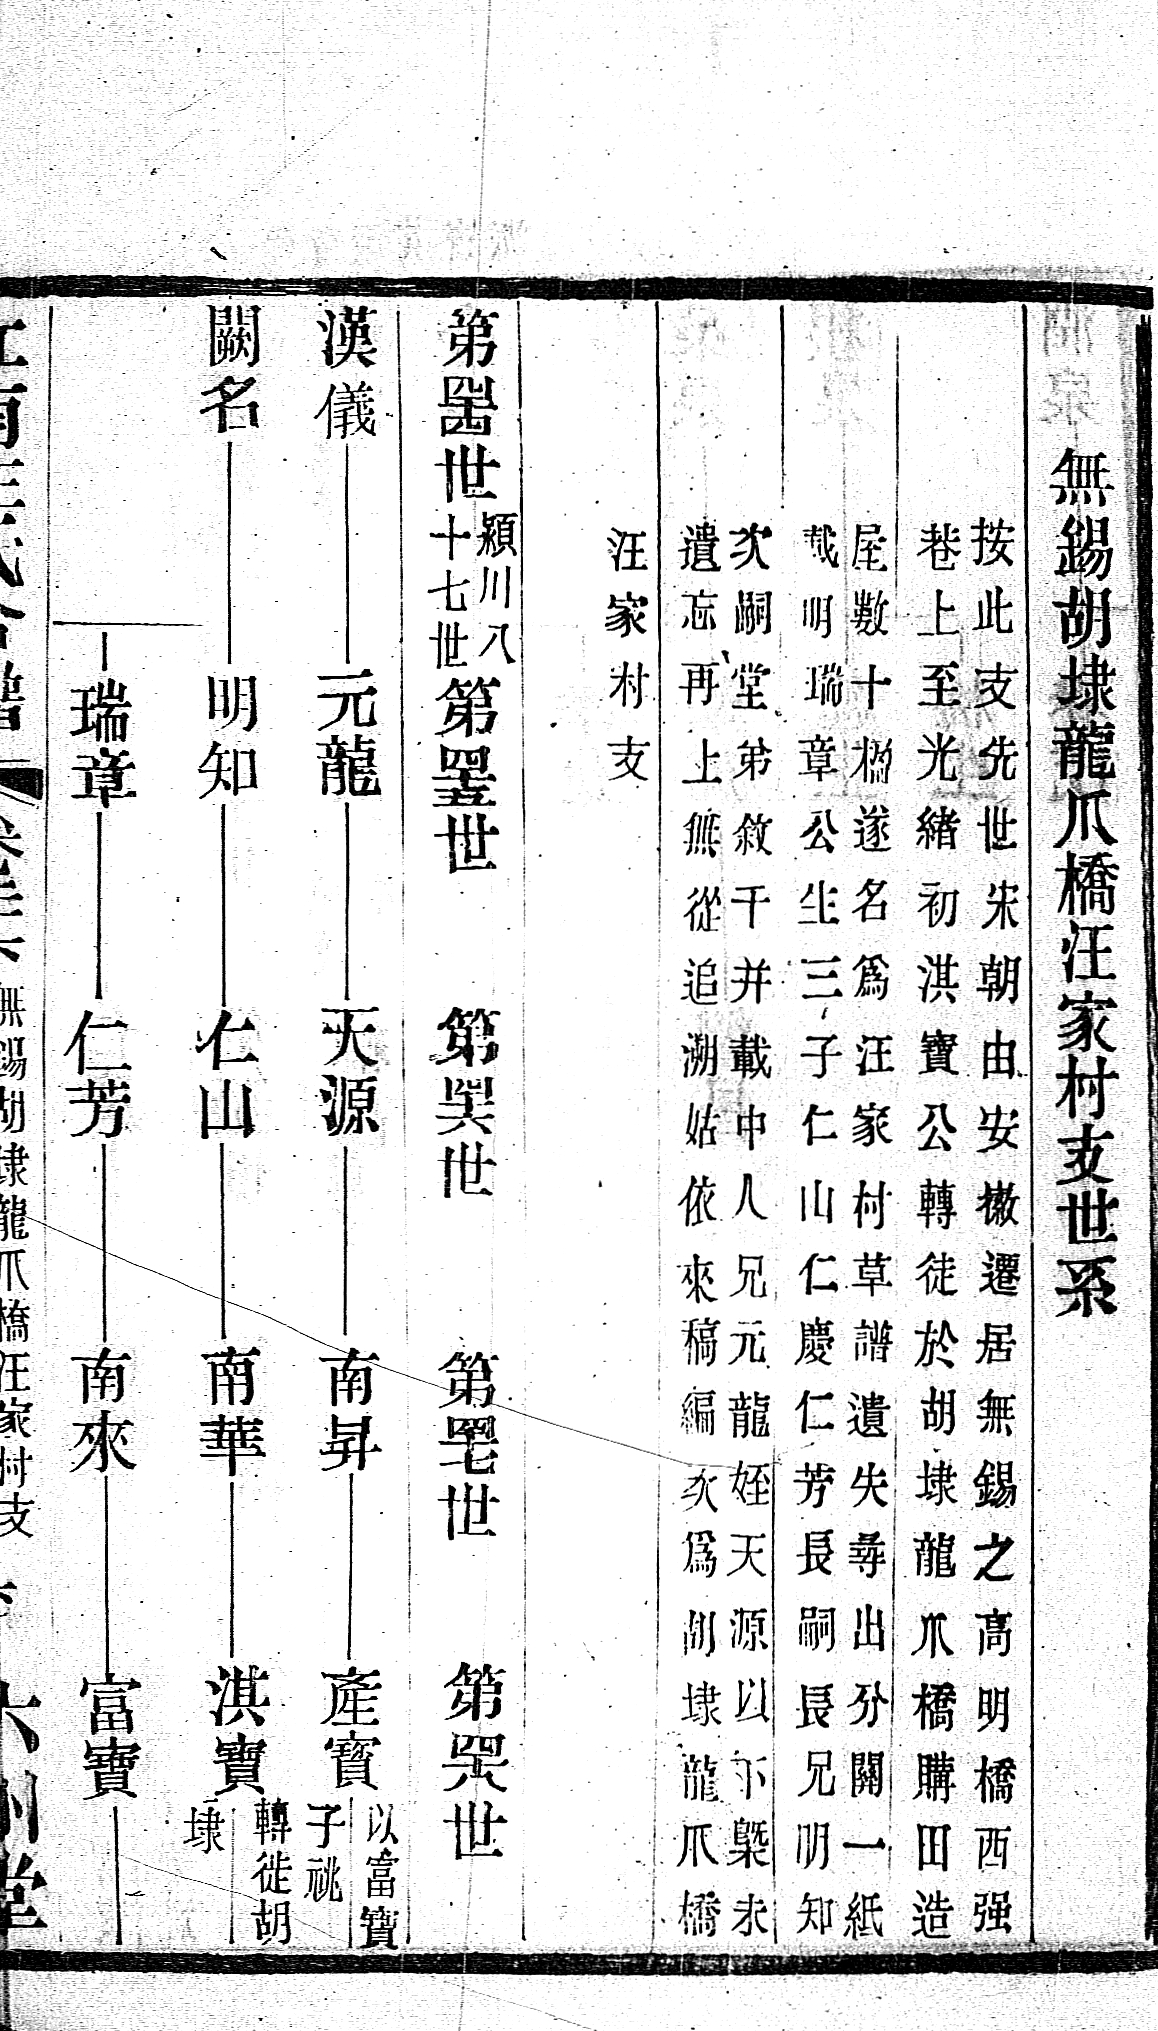 無錫胡埭龍爪橋汪家村支世系
按此支先世宋朝由安徽遷居無錫之高明橋西强
巷上至光緒初淇寶公轉徙於胡埭龍爪橋購田造
屋數十楹遂名爲汪家村草譜遺失尋出分關一紙
載明瑞章公生三子仁山仁慶仁芳長嗣長兄明知
次嗣堂弟敘干并載中人兄元龍姪天源以下槩未
遺忘再上無從追溯姑依來稿編次爲胡埭龍爪橋
汪家村支
第卌四世 潁川八十七世 第卌五世 第卌六世 第卌七世 第卌八世
漢儀 元龍 天源 南昇 產寶 以富寶子祧
闕名 明知 仁山 南華 淇寶 轉徙胡埭
瑞章 仁芳 南來 富寶
江南汪氏合譜 無錫胡埭龍爪橋汪家村支 六州堂